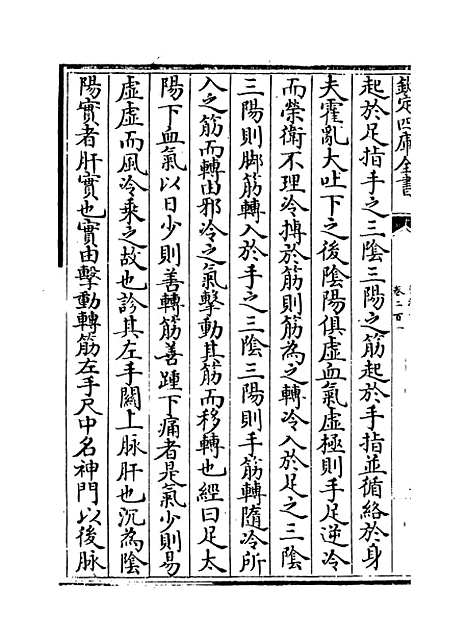 欽定四庫全書
卷二百一
起於足指手之三陰三陽之筋起於手指並循絡於身
夫霍亂大吐下之後陰陽俱虛血氣虛極則手足逆冷
而榮衛不理冷搏於筋則筋為之轉冷入於足之三陰
三陽則脚筋轉入於手之三陰三陽則手筋轉隨冷所
入之筋而轉由邪冷之氣擊動其筋而移轉也經曰足太
陽下血氣以日少則善轉筋善踵下痛者是氣少則易
虛虛而風冷乘之故也診其左手關上脉肝也沉為陰
陽實者肝實也實由擊動轉筋左手尺中名神門以後脉